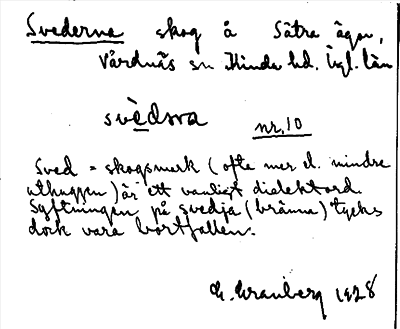 Svederna skog å Sätra ägor,
Vårdnäs sn Kinda hd. Ögl. län
svèdṇa
nr. 10
Sved = skogsmark (ofta mer el. mindre
uthuggen) är ett vanligt dialektord.
Syftningen på svedja (bränna) tycks
dock vara bortfallen.
G. Granberg 1928